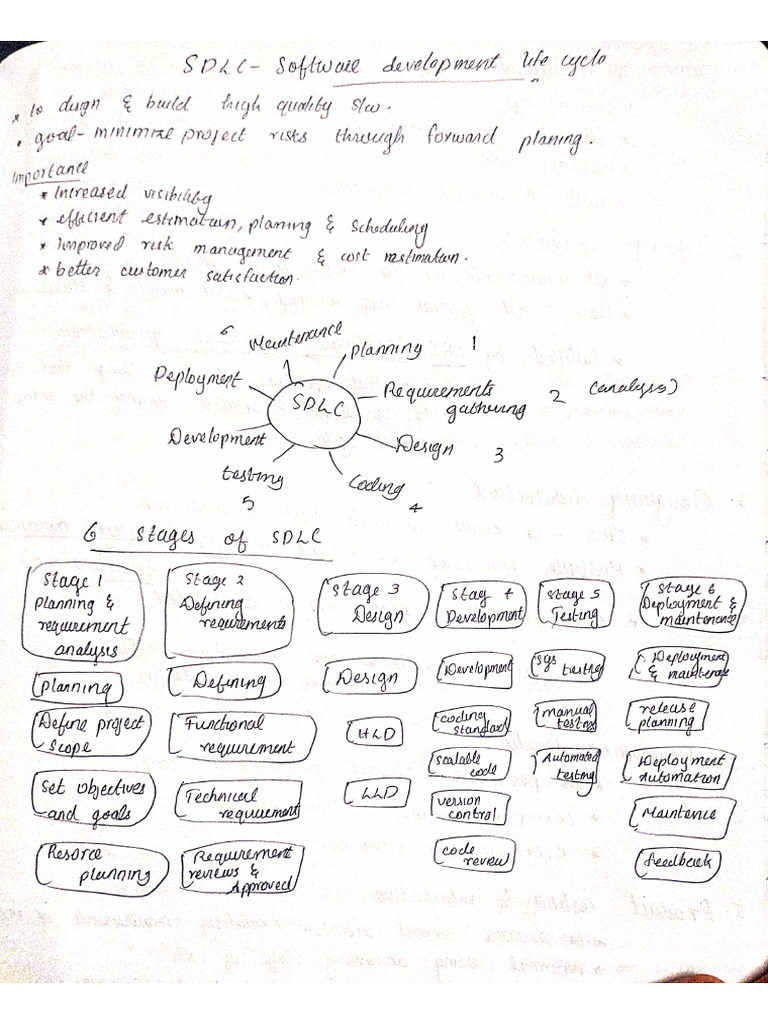 SDLC - Software development life cycle
* to design & build high quality s/w.
• goal - minimize project risks through forward planing.
Importance
* Increased visibility
* efficient estimation, planing & scheduling
* Improved risk management & cost restimation.
* better customer satisfaction.
6 Maintenance
Planning 1
Deployment
Requirements gathering 2 (analysis)
SDLC
Development
Design 3
testing 5
Coding 4
6 stages of SDLC
Stage 1
Planning &
requirement
analysis
planning
Define project
scope
Set objectives
and goals
Resorce
planning
Stage 2
Defining
requirements
Defining
Functional
requirement
Technical
requirement
Requirement
reviews &
Approved
Stage 3
Design
Design
HLD
LLD
Stag 4
Development
Development
coding
standard
scalable
code
version
control
code
review
Stage 5
Testing
sys testing
manual
testing
Automated
testing
Stage 6
Deployment &
maintenence
Deployment
&
release
planning
Deployment
Automation
Maintence
feedback